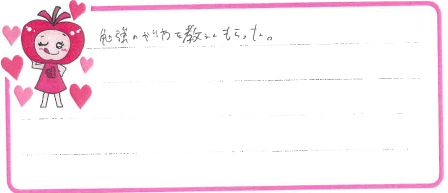 勉強のやり方を教えてもらった。